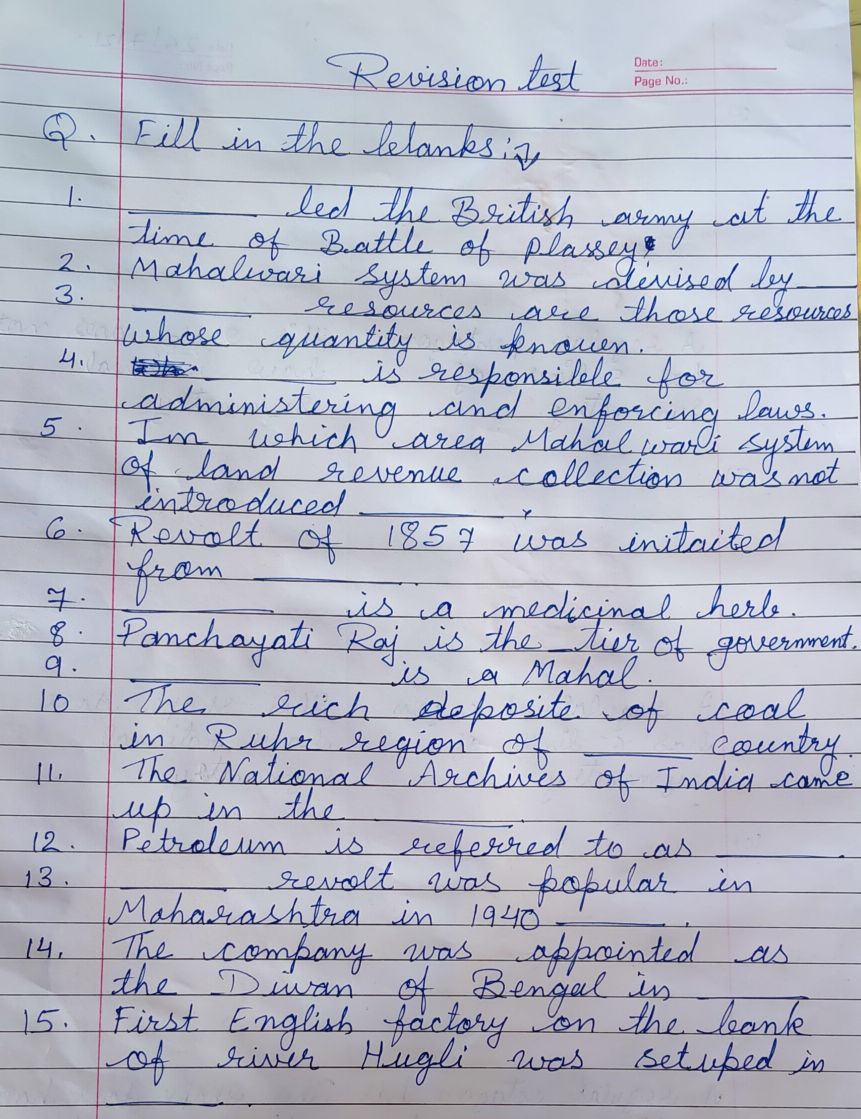 Revision test
Date:
Page No.:
Q. Fill in the blanks:
1. ______ led the British army at the
time of Battle of Plassey.
2. Mahalwari system was devised by ____
3. ______ resources are those resources
whose quantity is known.
4. ______ is responsible for
administering and enforcing laws.
5. In which area Mahalwari system
of land revenue collection was not
introduced ______.
6. Revolt of 1857 was initaited
from ______.
7. ______ is a medicinal herb.
8. Panchayati Raj is the _ tier of government.
9. ______ is a Mahal.
10 The rich deposite of coal
in Ruhr region of _____ country.
11. The National Archives of India came
up in the ______.
12. Petroleum is referred to as ______.
13. _____ revolt was popular in
Maharashtra in 1940 ______.
14. The company was appointed as
the Diwan of Bengal in _____
15. First English factory on the bank
of river Hugli was setuped in
______.